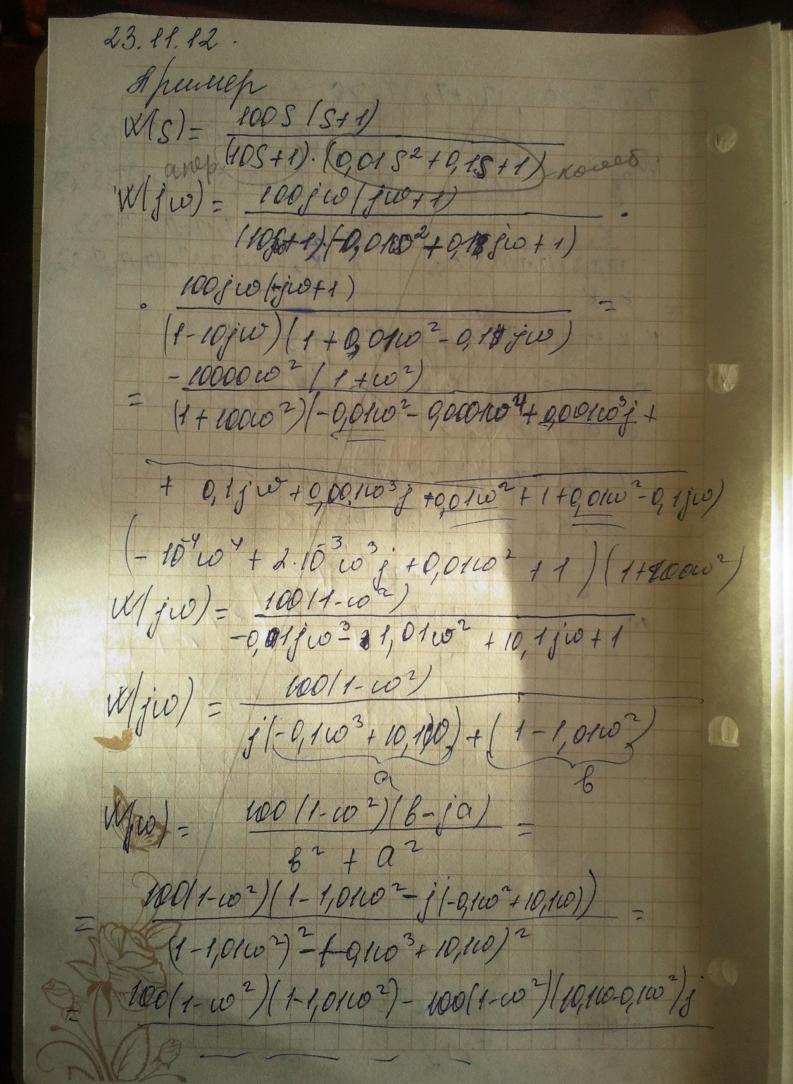 23.11.12.
Пример
W(s) = 100s(s+1) / (10s+1)·(0,01s²+0,1s+1)
апер колеб
W(jω) = 100jω(jω+1) / (10jω+1)(-0,01ω²+0,1jω+1) ·
· 100jω(-jω+1) / (1-10jω)(1+0,01ω²-0,1jω) =
= -10000ω²(1+ω²) / (1+100ω²)(-0,01ω²-0,0001ω⁴+0,001ω³j+
+ 0,1jω+0,001ω³j+0,01ω²+1+0,01ω²-0,1jω)
(-10⁻⁴ω⁴+2·10⁻³ω³j+0,01ω²+1)(1+100ω²)
W(jω) = 100(1-ω²) / -0,1jω³-1,01ω²+10,1jω+1
W(jω) = 100(1-ω²) / j(-0,1ω³+10,1ω)+(1-1,01ω²)
a в
W(jω) = 100(1-ω²)(в-ja) / в²+a² =
= 100(1-ω²)(1-1,01ω²-j(-0,1ω²+10,1ω)) / (1-1,01ω²)²-(-0,1ω³+10,1ω)² =
= 100(1-ω²)(1-1,01ω²)-100(1-ω²)(10,1ω-0,1ω²)j